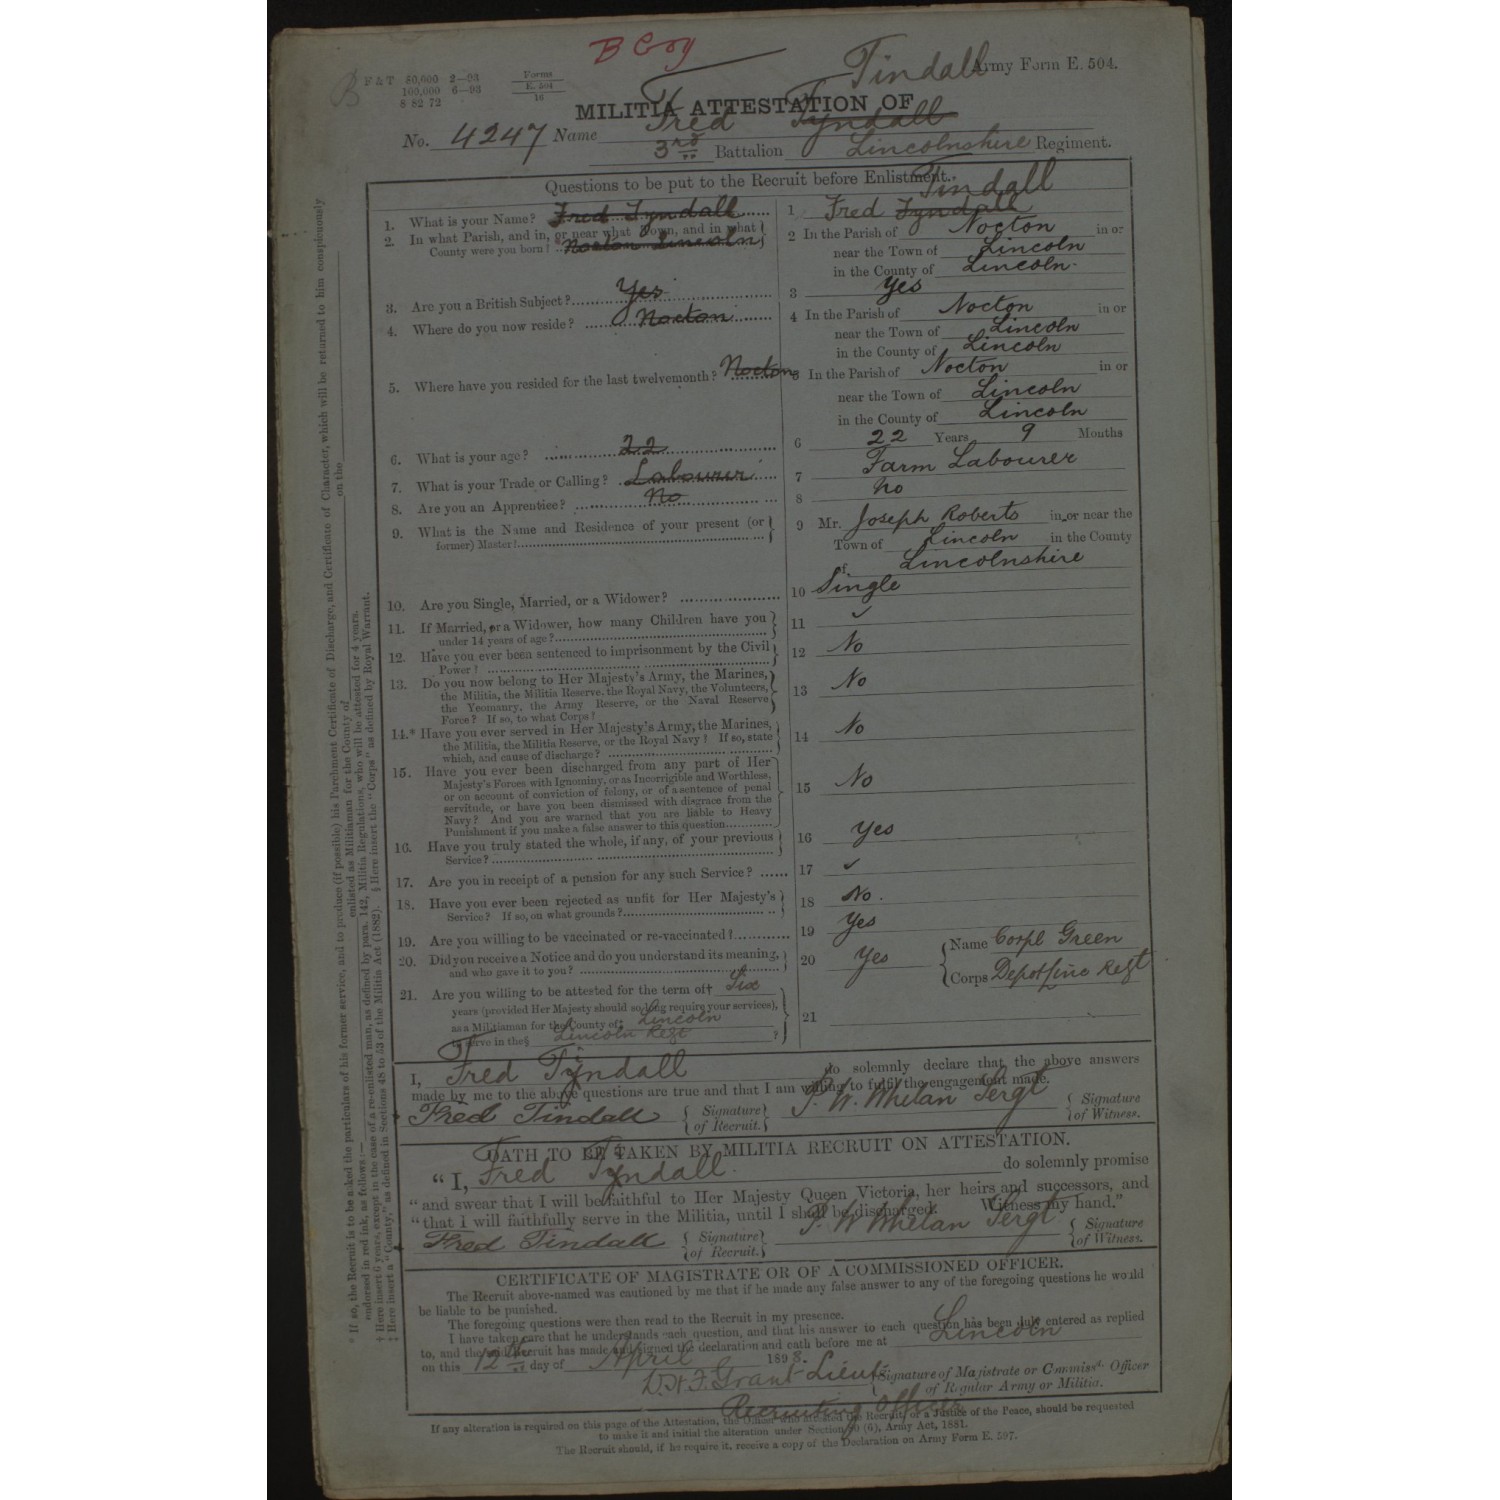 B Coy
Tindall
F & T 80,000 2—93
100,000 6—93
8 82 72
Forms
E. 504
16
Army Form E. 504.
MILITIA ATTESTATION OF
No. 4247 Name Fred Tyndall
3rd Battalion Lincolnshire Regiment.
Questions to be put to the Recruit before Enlistment.
Tindall
1. What is your Name? Fred Tyndall
1 Fred Tyndall
2. In what Parish, and in, or near what Town, and in what
County were you born? Nocton Lincoln
2 In the Parish of Nocton in or
near the Town of Lincoln
in the County of Lincoln.
3. Are you a British Subject? Yes
3 Yes
4. Where do you now reside? Nocton
4 In the Parish of Nocton in or
near the Town of Lincoln
in the County of Lincoln
5. Where have you resided for the last twelvemonth? Nocton
5 In the Parish of Nocton in or
near the Town of Lincoln
in the County of Lincoln
6. What is your age? 22
6 22 Years 9 Months
7. What is your Trade or Calling? Labourer
7 Farm Labourer
8. Are you an Apprentice? No
8 No
9. What is the Name and Residence of your present (or
former) Master?
9 Mr. Joseph Roberts in or near the
Town of Lincoln in the County
of Lincolnshire
10. Are you Single, Married, or a Widower?
10 Single
11. If Married, or a Widower, how many Children have you
under 14 years of age?
11 ✓
12. Have you ever been sentenced to imprisonment by the Civil
Power?
12 No
13. Do you now belong to Her Majesty's Army, the Marines,
the Militia, the Militia Reserve, the Royal Navy, the Volunteers,
the Yeomanry, the Army Reserve, or the Naval Reserve
Force? If so, to what Corps?
13 No
14.* Have you ever served in Her Majesty's Army, the Marines,
the Militia, the Militia Reserve, or the Royal Navy? If so, state
which, and cause of discharge?
14 No
15. Have you ever been discharged from any part of Her
Majesty's Forces with Ignominy, or as Incorrigible and Worthless,
or on account of conviction of felony, or of a sentence of penal
servitude, or have you been dismissed with disgrace from the
Navy? And you are warned that you are liable to Heavy
Punishment if you make a false answer to this question
15 No
16. Have you truly stated the whole, if any, of your previous
Service?
16 Yes
17. Are you in receipt of a pension for any such Service?
17 ✓
18. Have you ever been rejected as unfit for Her Majesty's
Service? If so, on what grounds?
18 No.
19. Are you willing to be vaccinated or re-vaccinated?
19 Yes
20. Did you receive a Notice and do you understand its meaning,
and who gave it to you?
20 Yes Name Corpl Green
Corps Depot Linc Regt
21. Are you willing to be attested for the term of† Six
years (provided Her Majesty should so long require your services),
as a Militiaman for the County of‡ Lincoln
to serve in the§ Lincoln Regt ?
21
I, Fred Tyndall do solemnly declare that the above answers
made by me to the above questions are true and that I am willing to fulfil the engagement made.
Fred Tindall Signature of Recruit. P. W. Whelan Sergt Signature of Witness.
OATH TO BE TAKEN BY MILITIA RECRUIT ON ATTESTATION.
"I, Fred Tyndall do solemnly promise
"and swear that I will be faithful to Her Majesty Queen Victoria, her heirs and successors, and
"that I will faithfully serve in the Militia, until I shall be discharged. Witness my hand."
Fred Tindall Signature of Recruit. P. W Whelan Sergt Signature of Witness.
CERTIFICATE OF MAGISTRATE OR OF A COMMISSIONED OFFICER.
The Recruit above-named was cautioned by me that if he made any false answer to any of the foregoing questions he would
be liable to be punished.
The foregoing questions were then read to the Recruit in my presence.
I have taken care that he understands each question, and that his answer to each question has been duly entered as replied
to, and the said Recruit has made and signed the declaration and oath before me at Lincoln
on this 12th day of April 1898.
Grant Lieut Signature of Magistrate or Commissd. Officer
of Regular Army or Militia.
Recruiting Officer
If any alteration is required on this page of the Attestation, the Officer who attested the Recruit, or a Justice of the Peace, should be requested
to make it and initial the alteration under Section 80 (6), Army Act, 1881.
The Recruit should, if he require it, receive a copy of the Declaration on Army Form E. 597.
* If so, the Recruit is to be asked the particulars of his former service, and to produce (if possible) his Parchment Certificate of Discharge, and Certificate of Character, which will be returned to him conspicuously
endorsed in red ink, as follows:— enlisted as Militiaman for the County of on the
† Here insert 6 years, except in the case of a re-enlisted man, as defined by para. 142, Militia Regulations, who will be attested for 4 years.
‡ Here insert a "County," as defined in Sections 48 to 53 of the Militia Act (1882). § Here insert the "Corps" as defined by Royal Warrant.